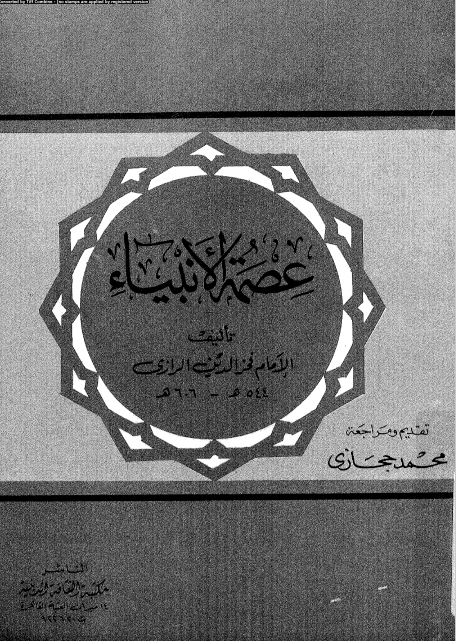 Converted by Tiff Combine - (no stamps are applied by registered version)
عِصمَةُ الأَنبيَاءِ
تأليف
الإمام فخر الدين الرازى
٥٤٤ هـ - ٦٠٦ هـ
تقديم ومراجعة
محمد حجازى
الناشر
مكتبة الثقافة الدينية